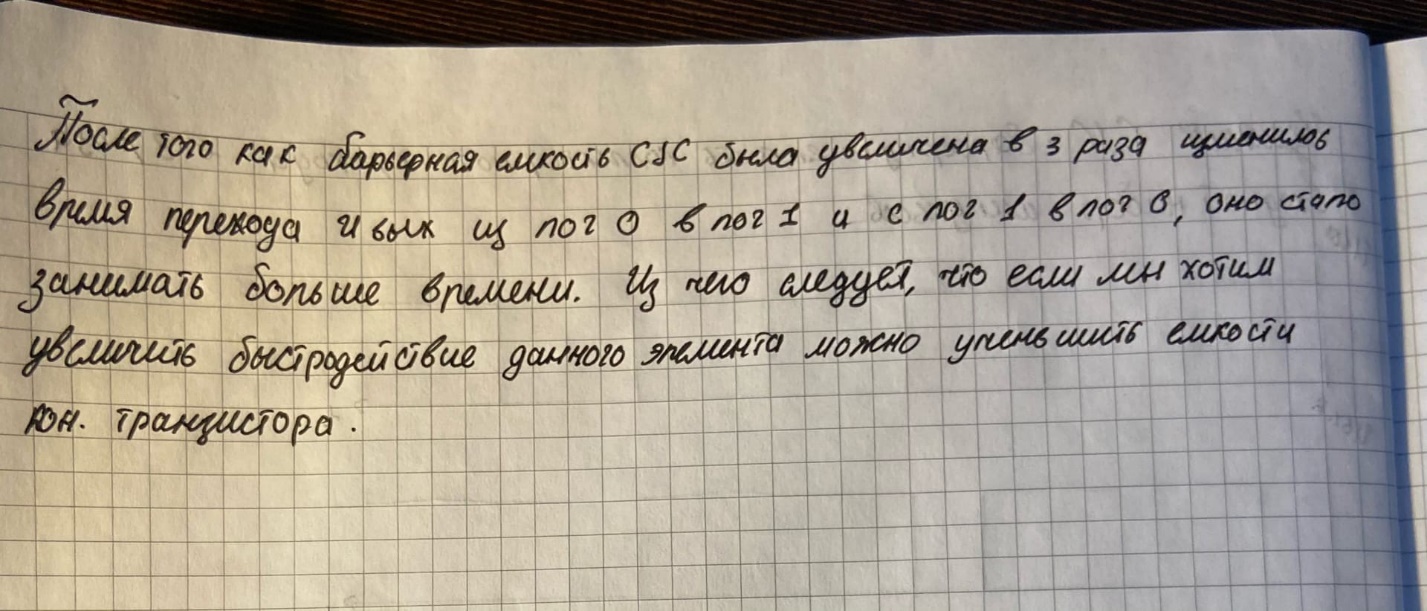 После того как барьерная емкость CJC была увеличена в 3 раза изменилось
время перехода U вых из лог 0 в лог 1 и с лог 1 в лог 0, оно стало
занимать больше времени. Из чего следует, что если мы хотим
увеличить быстродействие данного элемента можно уменьшить емкости
транзистора.